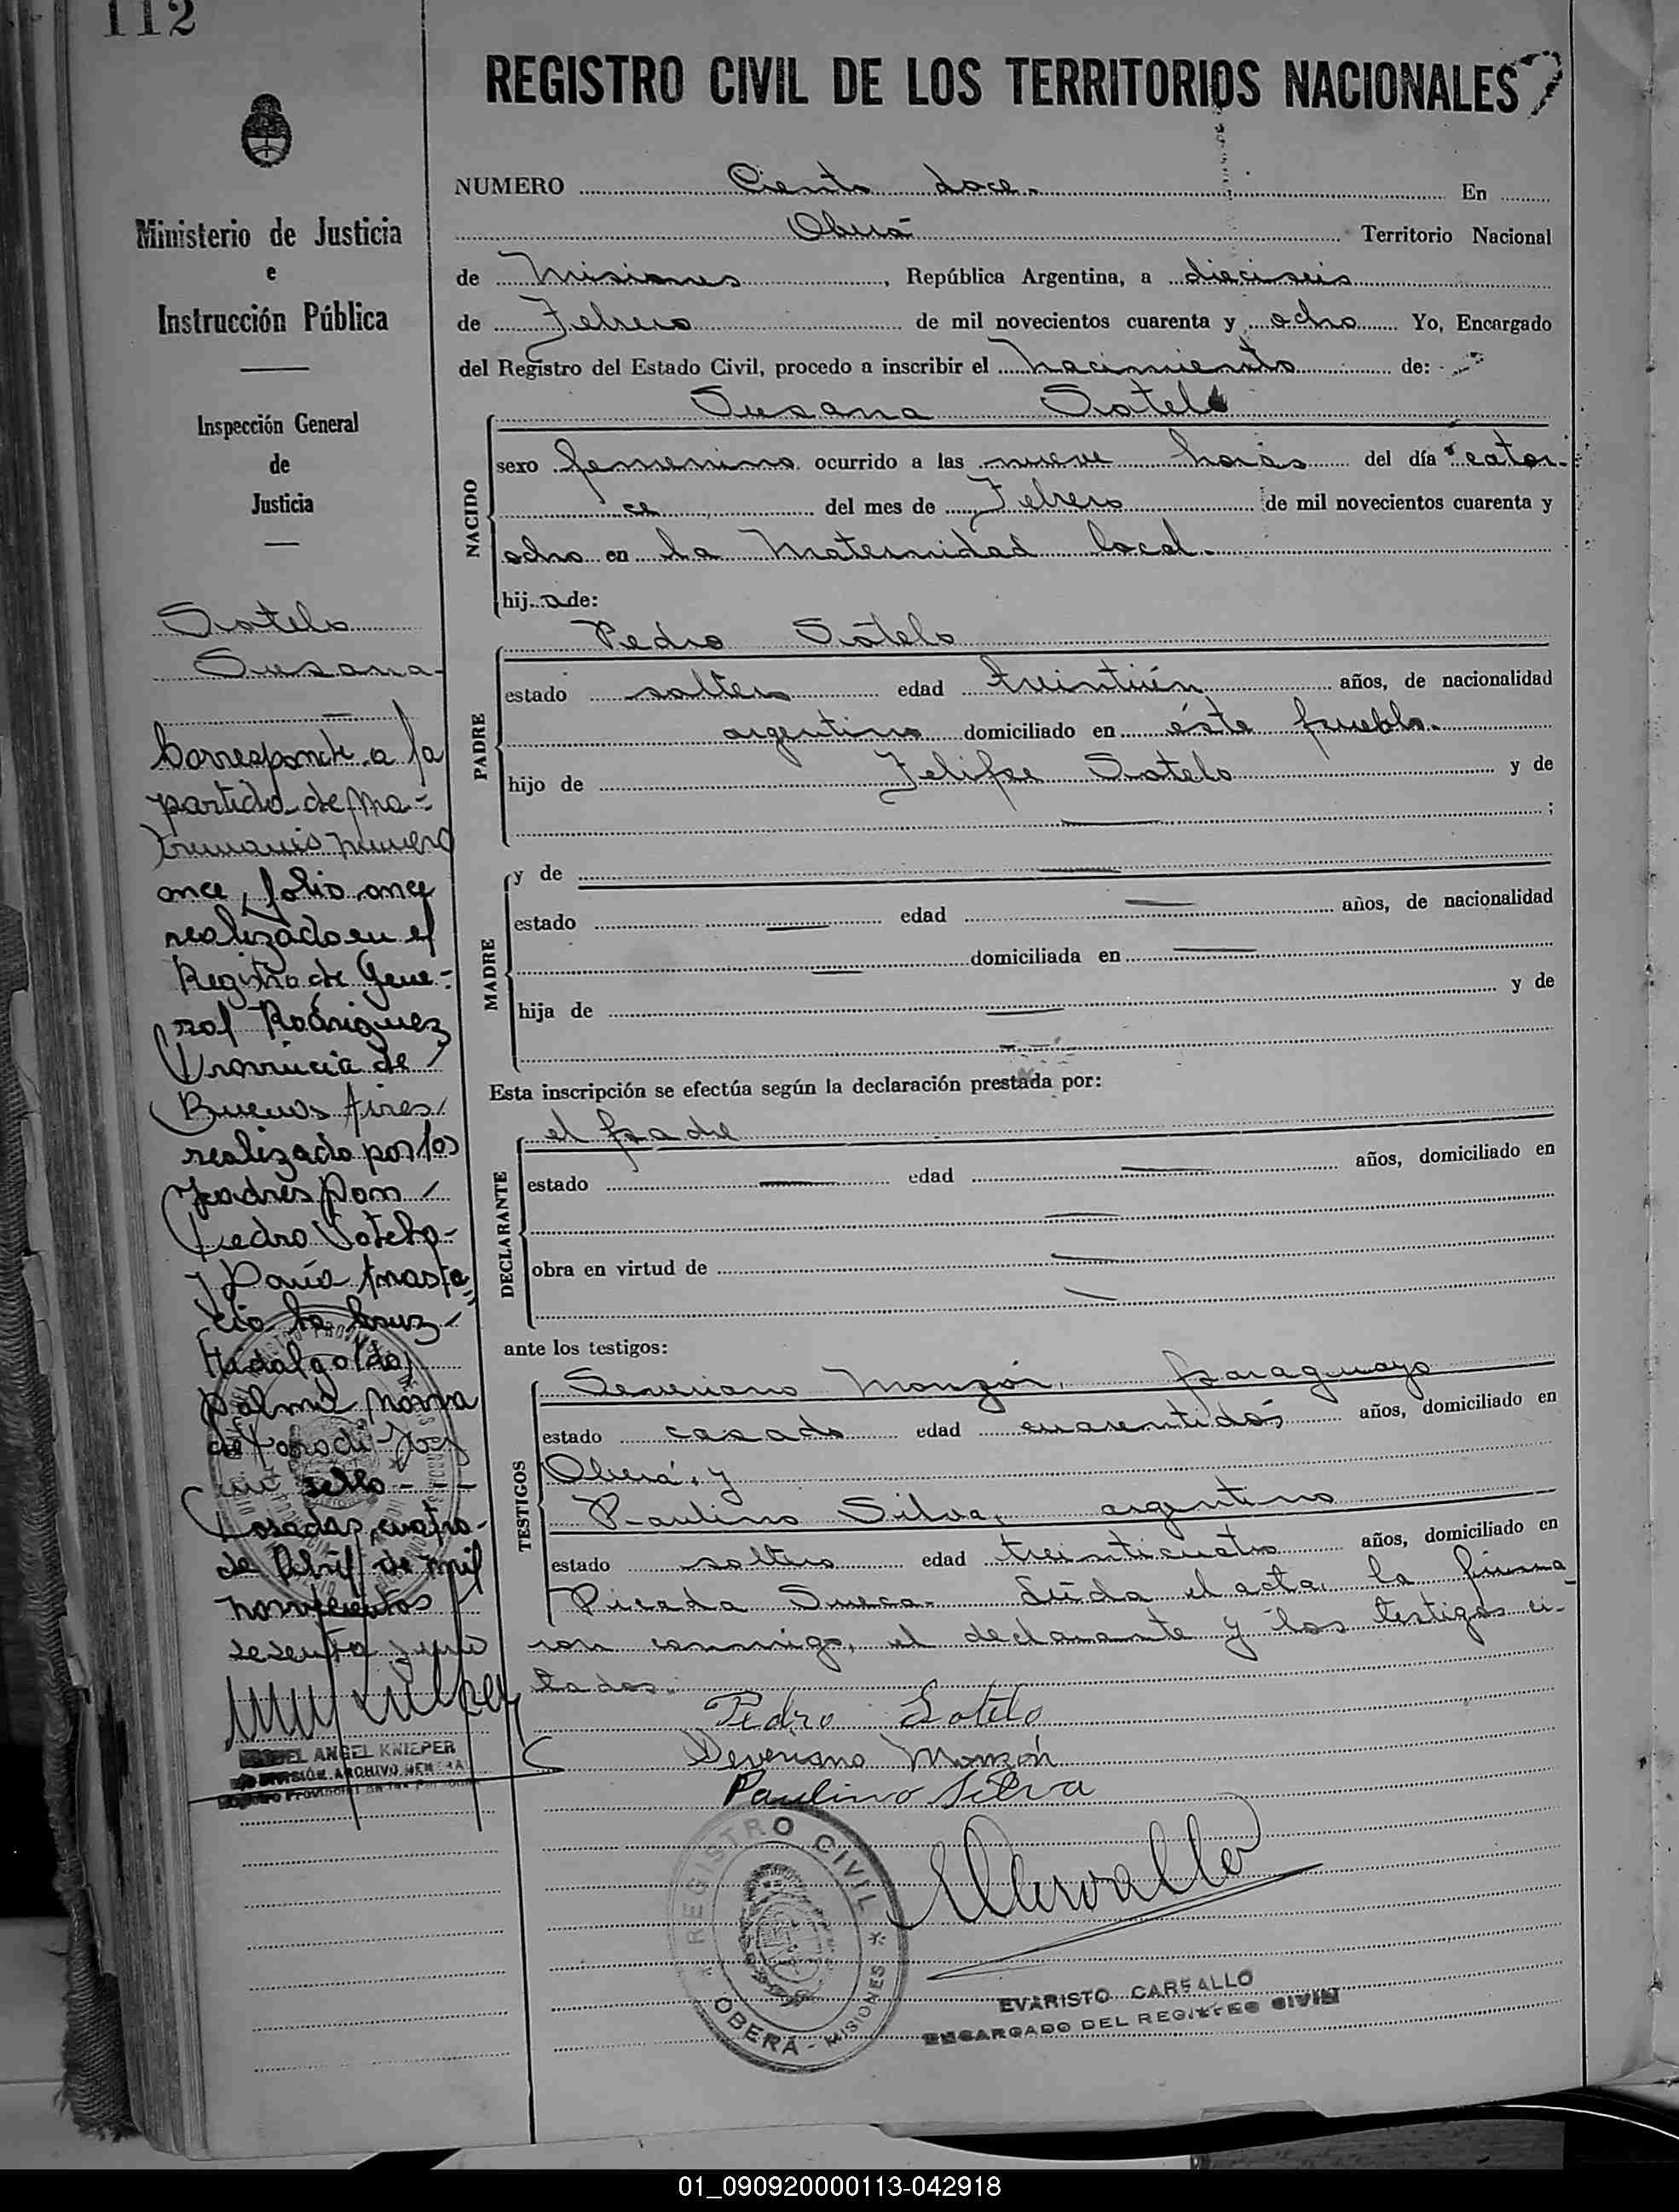 112
REGISTRO CIVIL DE LOS TERRITORIOS NACIONALES
Ministerio de Justicia
e
Instrucción Pública
Inspección General
de
Justicia
Sotelo
Susana
Corresponde a la
partida de Ma=
trimonio número
once, folio once
realizado en el
Registro de Gene=
ral Rodriguez
Provincia de
Buenos Aires
realizado por los
padres Don
Pedro Sotelo
y Doña Anasta=
cia La Cruz
Hidalgo
Norma
de
sello
Posadas, cuatro
de Abril de mil
novecientos
sesenta y
ANGEL KNIEPER
DIVISIÓN ARCHIVO GENERAL
Registro Provincial de las Personas
NUMERO Ciento doce. En
Oberá Territorio Nacional
de Misiones, República Argentina, a dieciseis
de Febrero de mil novecientos cuarenta y ocho Yo, Encargado
del Registro del Estado Civil, procedo a inscribir el nacimiento de:
Susana Sotelo
NACIDO
sexo femenino ocurrido a las nueve horas del día cator-
ce del mes de Febrero de mil novecientos cuarenta y
ocho en la Maternidad local.
hija de:
PADRE
Pedro Sotelo
estado soltero edad treintiún años, de nacionalidad
argentino domiciliado en éste pueblo.
hijo de Felipe Sotelo y de
;
MADRE
y de
estado edad años, de nacionalidad
domiciliada en
hija de y de
Esta inscripción se efectúa según la declaración prestada por:
DECLARANTE
el padre
estado edad años, domiciliado en
obra en virtud de
ante los testigos:
TESTIGOS
Severiano Monzón, paraguayo
estado casado edad cuarentidós años, domiciliado en
Oberá, y
Paulino Silva, argentino
estado soltero edad treinticuatro años, domiciliado en
Picada Sueca. Leída el acta, la firma-
ron conmigo, el declarante y los testigos ci-
tados.
Pedro Sotelo
Severiano Monzón
Paulino Silva
REGISTRO CIVIL
OBERÁ - MISIONES
ECarvallo
EVARISTO CARVALLO
ENCARGADO DEL REGISTRO CIVIL
01_090920000113-042918